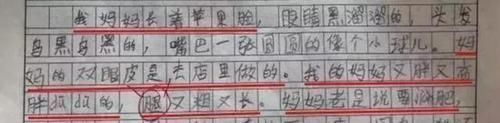 我妈妈长着苹果脸，眼睛黑溜溜的，头发
乌黑乌黑的，嘴巴一张圆圆的像个小球儿。妈
妈的双眼皮是去店里做的。我的妈妈又胖又高
胖dūdū的，腿又粗又长。妈妈老是说要减肥，